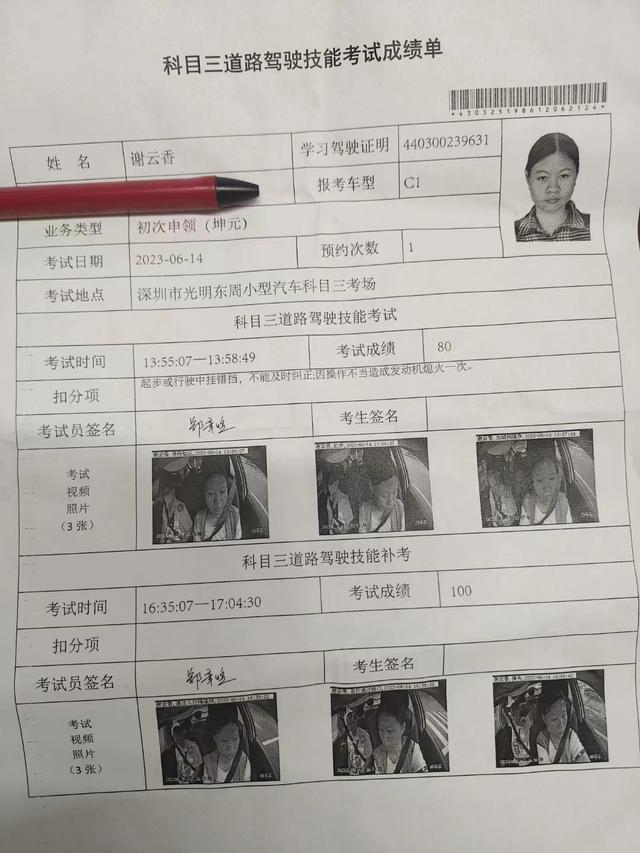 科目三道路驾驶技能考试成绩单
*430525198612062124*
姓 名 谢云香 学习驾驶证明 440300239631
报考车型 C1
业务类型 初次申领（坤元）
考试日期 2023-06-14 预约次数 1
考试地点 深圳市光明东周小型汽车科目三考场
科目三道路驾驶技能考试
考试时间 13:55:07—13:58:49 考试成绩 80
扣分项 起步或行驶中挂错挡，不能及时纠正;因操作不当造成发动机熄火一次。
考试员签名 考生签名
考试
视频
照片
（3 张）
科目三道路驾驶技能补考
考试时间 16:35:07—17:04:30 考试成绩 100
扣分项
考试员签名 考生签名
考试
视频
照片
（3 张）